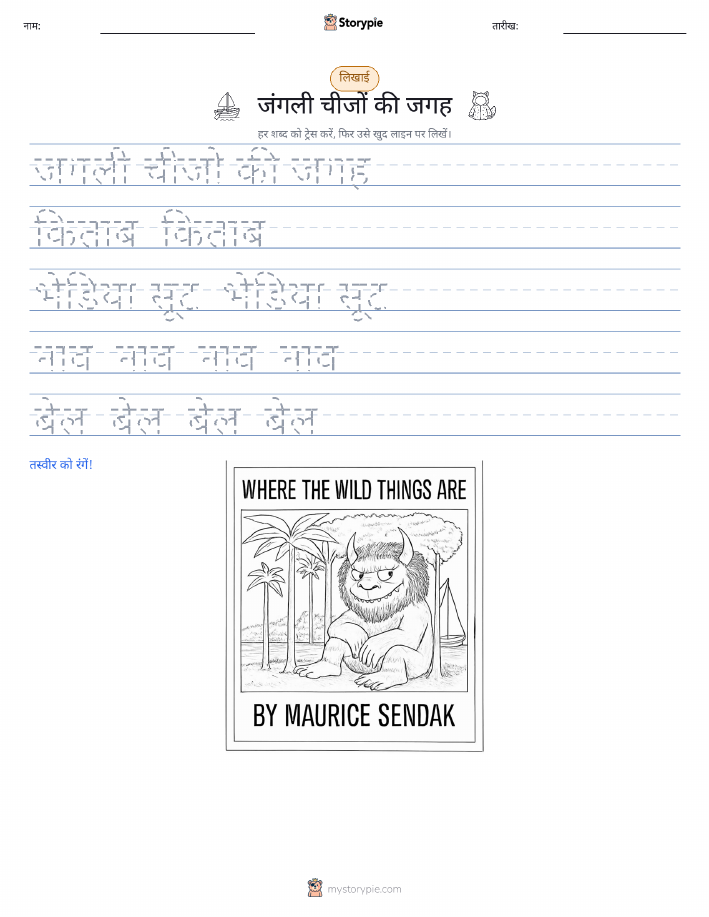 नाम:
Storypie
तारीख:
लिखाई
जंगली चीजों की जगह
हर शब्द को ट्रेस करें, फिर उसे खुद लाइन पर लिखें।
जंगली चीजों की जगह
किताब किताब
भेड़िया सूट भेड़िया सूट
नाव नाव नाव नाव
बेल बेल बेल बेल
तस्वीर को रंगें!
WHERE THE WILD THINGS ARE
BY MAURICE SENDAK
mystorypie.com